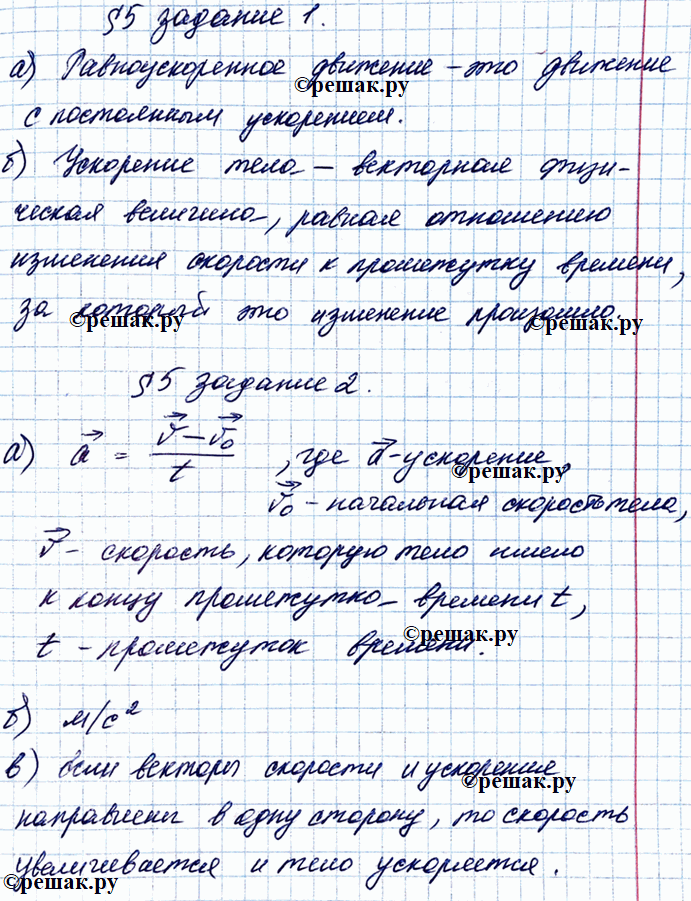 §5 задание 1.
а) Равноускоренное движение – это движение
©решак.ру
с постоянным ускорением.
б) Ускорение тела – векторная физи-
ческая величина, равная отношению
изменения скорости к промежутку времени,
за который это изменение произошло.
©решак.ру ©решак.ру
§5 задание 2.
а) a⃗ = (v⃗ – v⃗₀)/t, где a⃗ - ускорение,
©решак.ру
v⃗₀ - начальная скорость тела,
v⃗ - скорость, которую тело имело
к концу промежутка времени t,
©решак.ру
t - промежуток времени.
б) м/с²
в) Если векторы скорости и ускорения
©решак.ру
направлены в одну сторону, то скорость
увеличивается и тело ускоряется.
©решак.ру